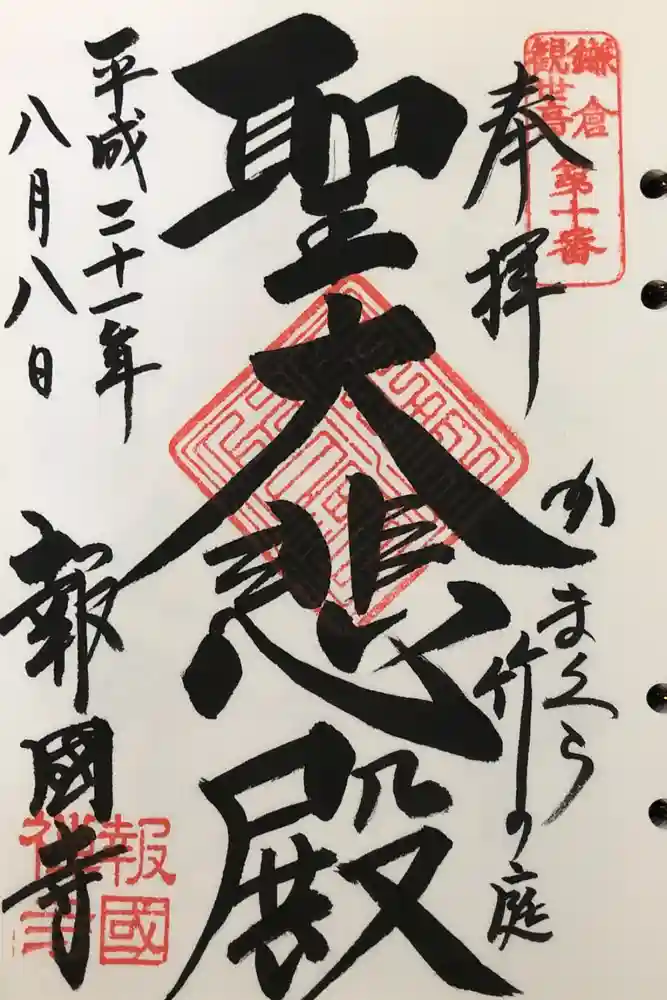 鎌倉
観世音
第十番
奉拝
かまくら竹の庭
聖大悲殿
平成二十一年
八月八日
報國寺
報國
禅寺